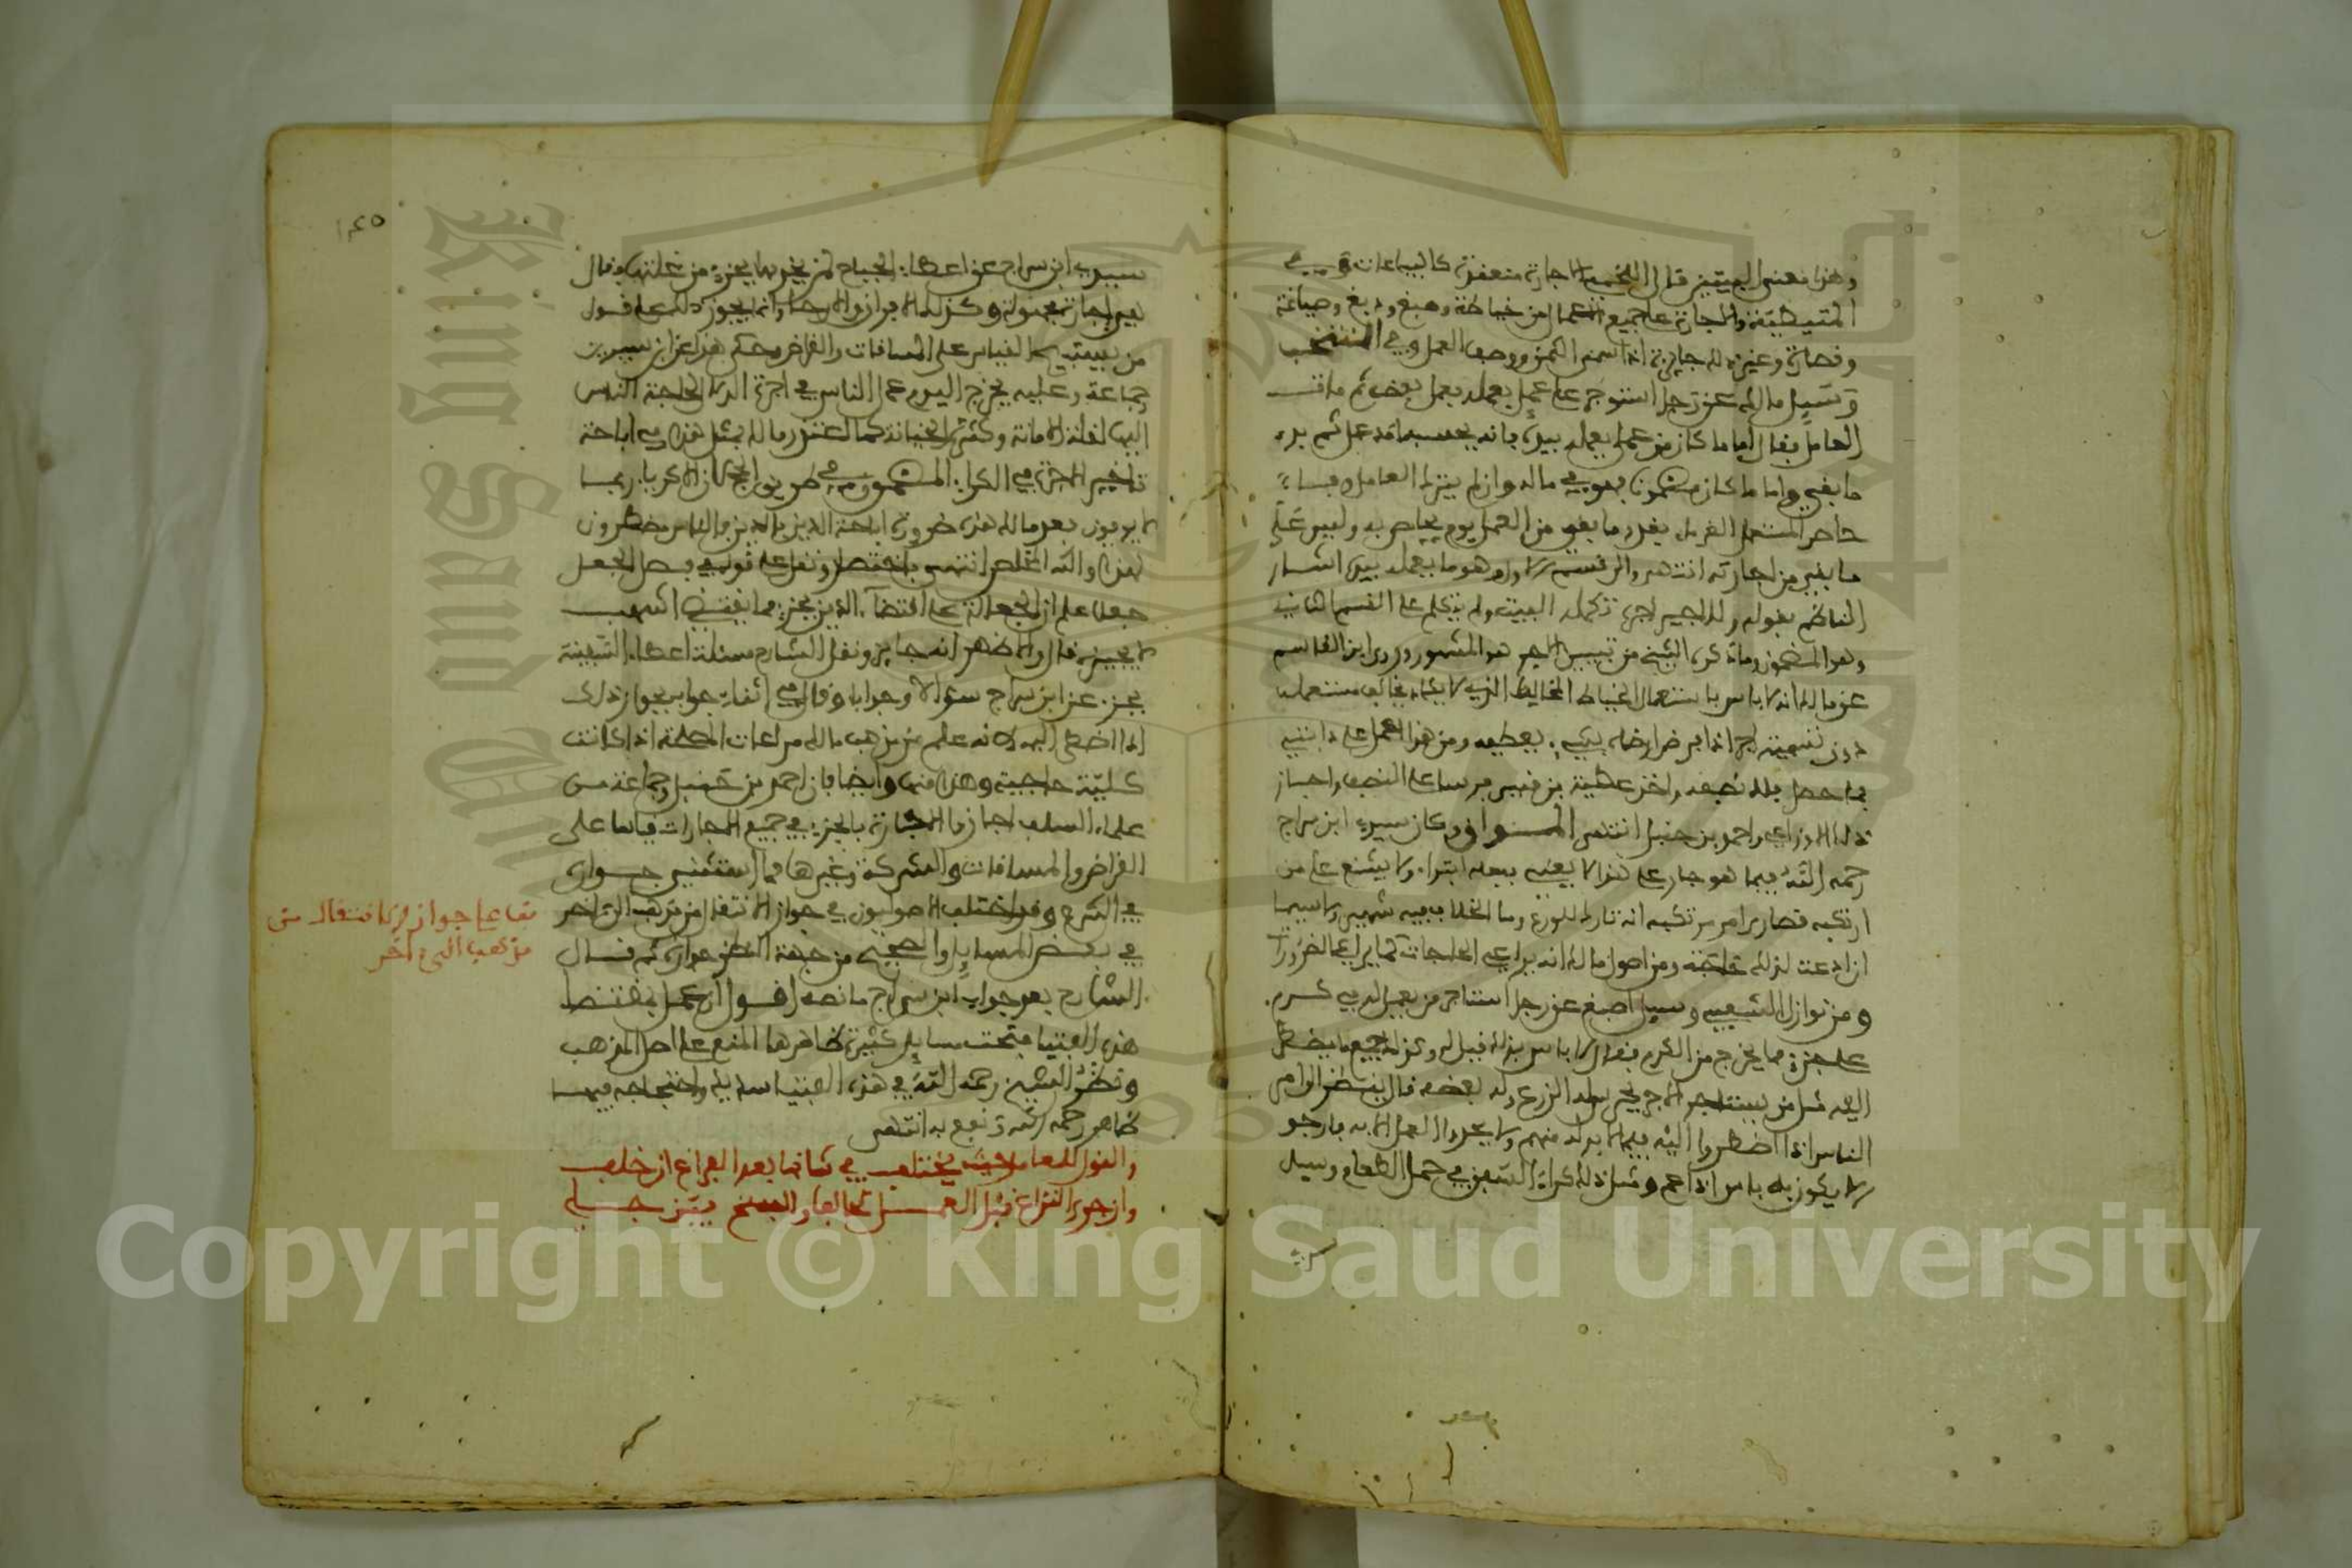 وهذا معنى البيتين قال اللخمي الاجارة منعقدة كالبياعات وفي
المتيطية والاجارة على جميع الاعمال من خياطة وصبغ ودبغ وصياغة
وقصارة وغير ذلك جايزة اذا سمى الثمن ووصف العمل وفي المنتخب
وسيل مالك عن رجل استوجر على عمل يعمله بعمل بعض ثم مات
العامل فقال اما ما كان من عمل يعمله بيده فانه يحسب له ما عمل ثم يرد
ما بقي واما ما كان مضمونا فهو في ماله وان لم يترك العامل وفاء
حاص المستعمل الغرماء بقدر ما بقي من العمل يوم يحاص به وليس على
ما بقي من اجارته انتهى والى القسم الاول وهو ما يعمله بيده اشار
الناظم بقوله وللاجير اجرة تكمله البيت ولم يتكلم على القسم الثاني
وهو المضمون وما ذكره الشيخ من تبيين الاجر هو المشهور وروى ابن القاسم
عن مالك انه لا باس باستعمال الخياط المخالط الذي لا يكاد يخالف مستعمله
دون تسمية اجر اذا فرغ ارضاه بشيء يعطيه ومن هذا العمل على دابتي
فما حصل فلك نصفه واخذ عطية بن قيس فرسا على النصف واجاز
ذلك الاوزاعي واحمد بن حنبل انتهى المواق وكان سيدي ابن سراج
رحمه الله فيما هو جار على هذا لا يفتي بفعله ابتداء ولا يشنع على من
ارتكبه قصارى امر مرتكبه انه تارك للورع وما الخلاف فيه شهير ولا سيما
ان دعت لذلك حاجة ومن اصول مالك انه يراعي الحاجات كما يراعي الضرورات
ومن نوازل الشعبي وسيل اصبغ عن رجل استاجر من يعمل له في كرم
على جزء مما يخرج من الكرم فقال لا باس بذلك قيل له وكذلك جميع ما يضطر
اليه مثل من يستاجر الاجير يحرس له الزرع وله بعضه قال ينظر الى امر
الناس اذا اضطروا اليه فيما لا بد لهم منه ولا يجدون العمل الا به فارجو
الا يكون به باس اذا عم ومثل ذلك كراء السفن في حمل الطعام وسيل
سيدي
١٤٥
سيدي ابن سراج عن اعطاء الجباح لمن يخدمها بجزء من غلتها فقال
هي اجارة مجهولة وكذلك الافران والارحاء وانما يجوز ذلك على قول
من يستبيح القياس على المساقات والقراض وحكي هذا عن ابن سيرين
وجماعة وعليه يخرج اليوم عمل الناس في اجرة الدلال لحاجة الناس
اليها لقلة الامانة وكثرة الخيانة كما اعتذر مالك بمثل هذا في اباحة
تاخير الاجرة في الكراء المضمون في طريق الحج لان الاكرياء ربما
لا يوفون فعد مالك هذا ضرورة اباحة الدين بالدين والناس مضطرون
لهذا والله المخلص انتهى باختصار ونقل على قوله في فصل الجعل
جعلا على ان الجعالة على اقتضاء الدين بجزء مما يقتضي اشهب
لا يجيزه قال والاظهر انه جايز ونقل الشارح مسئلة اعطاء السفينة
بجزء عن ابن سراج سؤالا وجوابا وقال في اثناء جوابه بجواز ذلك
اذا اضطر اليه لانه علم من مذهب مالك مراعات المصلحة اذا كانت
كلية حاجية وهذا منها وايضا فان احمد بن حنبل وجماعة من
علماء السلف اجازوا الاجارة بالجزء في جميع الاجارات قياسا على
القراض والمساقات والشركة وغيرها مما استثني جوازه
في الشرع وقد اختلف الاصوليون في جواز الانتقال من مذهب الى اخر
في بعض المسايل والصحيح من جهة النظر جوازه ثم قال
الشارح بعد جواب ابن سراج ما نصه اقول ان عمل بمقتضى
هذه الفتيا فتحت مسايل كثيرة ظاهرها المنع على اصل المذهب
ونظر الشيخ رحمه الله في هذه الفتيا سديد واحتجاجه فيها
ظاهر رحمه الله ونفع به انتهى
والقول للعامل حيث يختلف في شانها بعد الفراغ ان حلف
وان جرى النزاع قبل العمل تحالفا والفسخ بينهن جلي
قف على جواز الانتقال من
مذهب الى اخر
Copyright © King Saud University
King Saud University